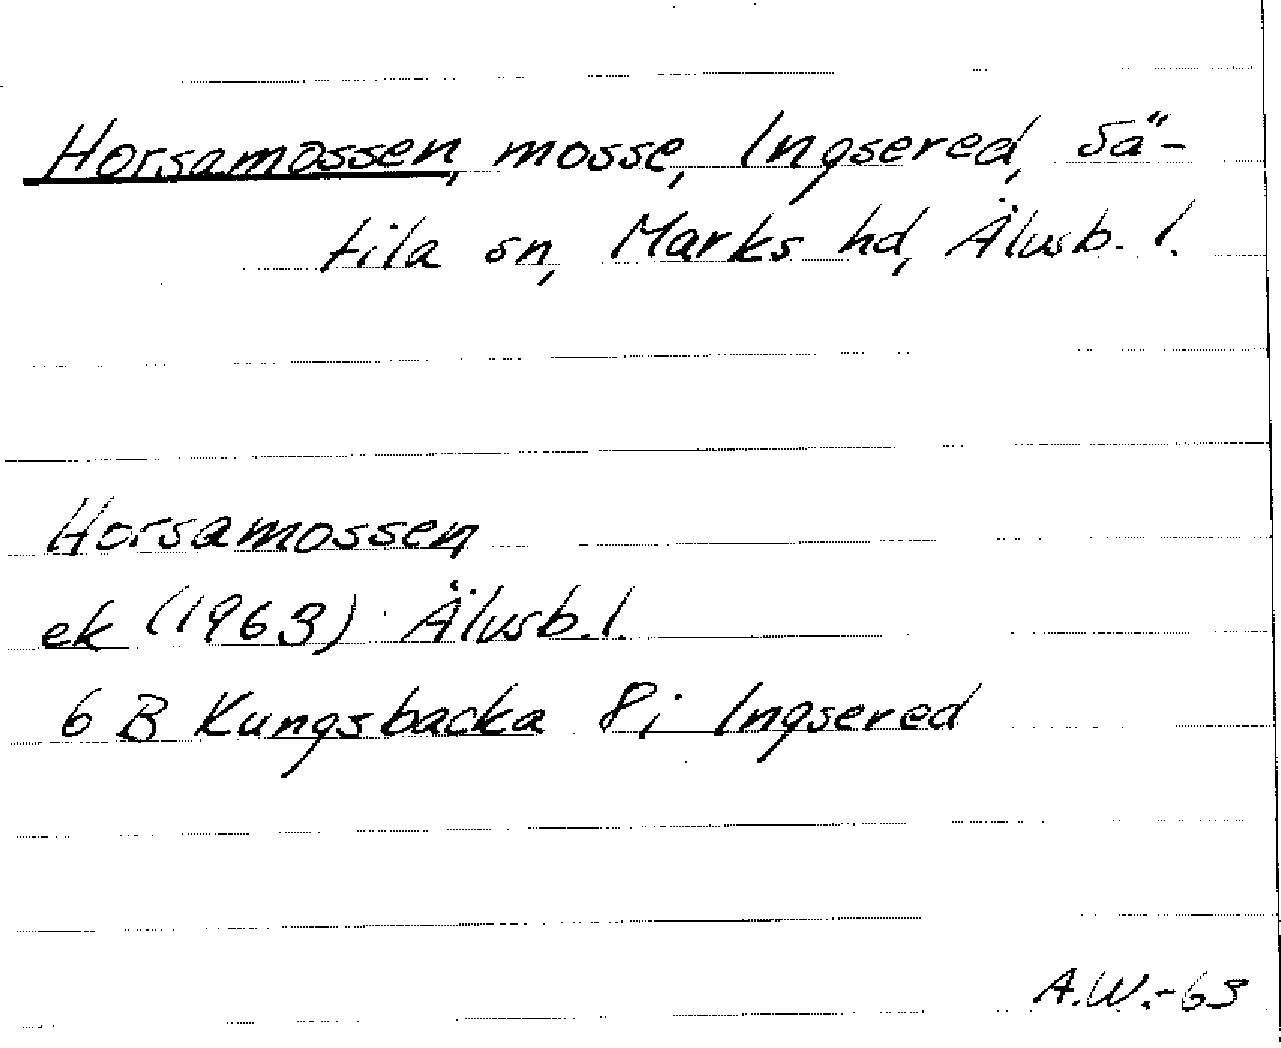 Horsamossen, mosse, Ingsered, Sä-
tila sn, Marks hd, Älvsb. l.
Horsamossen
ek (1963) Älvsb. l.
6 B Kungsbacka 8i Ingsered
A.W.-63